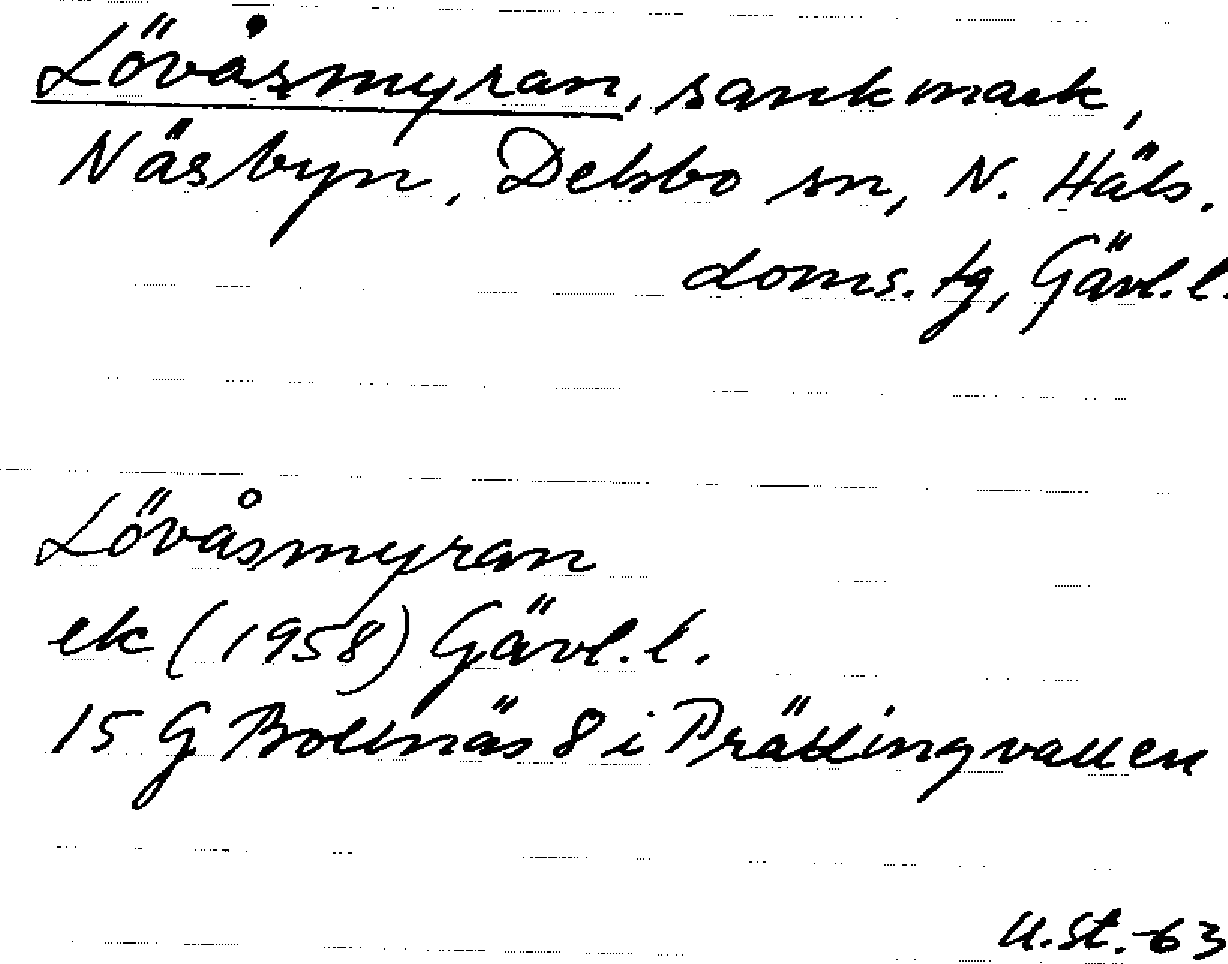 Lövåsmyran, sankmark,
Näsbyn, Delsbo sn, N. Häls.
doms. tg, Gävl. l.
Lövåsmyran
ek (1958) Gävl. l.
15 G Bollnäs 8 i Prästingvallen
U.St.-63